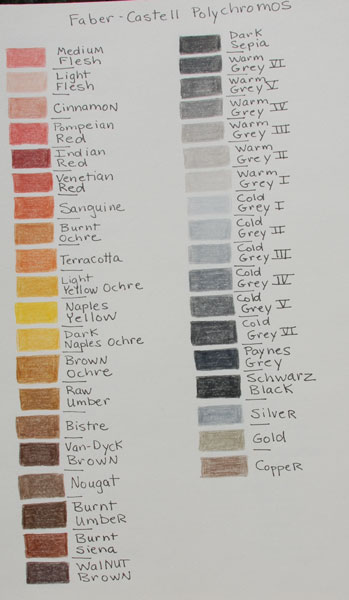 Faber-Castell Polychromos
Medium
Flesh
Light
Flesh
Cinnamon
Pompeian
Red
Indian
Red
Venetian
Red
Sanguine
Burnt
Ochre
Terracotta
Light
Yellow Ochre
Naples
Yellow
Dark
Naples Ochre
Brown
Ochre
Raw
Umber
Bistre
Van-Dyck
Brown
Nougat
Burnt
Umber
Burnt
Siena
Walnut
Brown
Dark
Sepia
Warm
Grey VI
Warm
Grey V
Warm
Grey IV
Warm
Grey III
Warm
Grey II
Warm
Grey I
Cold
Grey I
Cold
Grey II
Cold
Grey III
Cold
Grey IV
Cold
Grey V
Cold
Grey VI
Paynes
Grey
Schwarz
Black
Silver
Gold
Copper